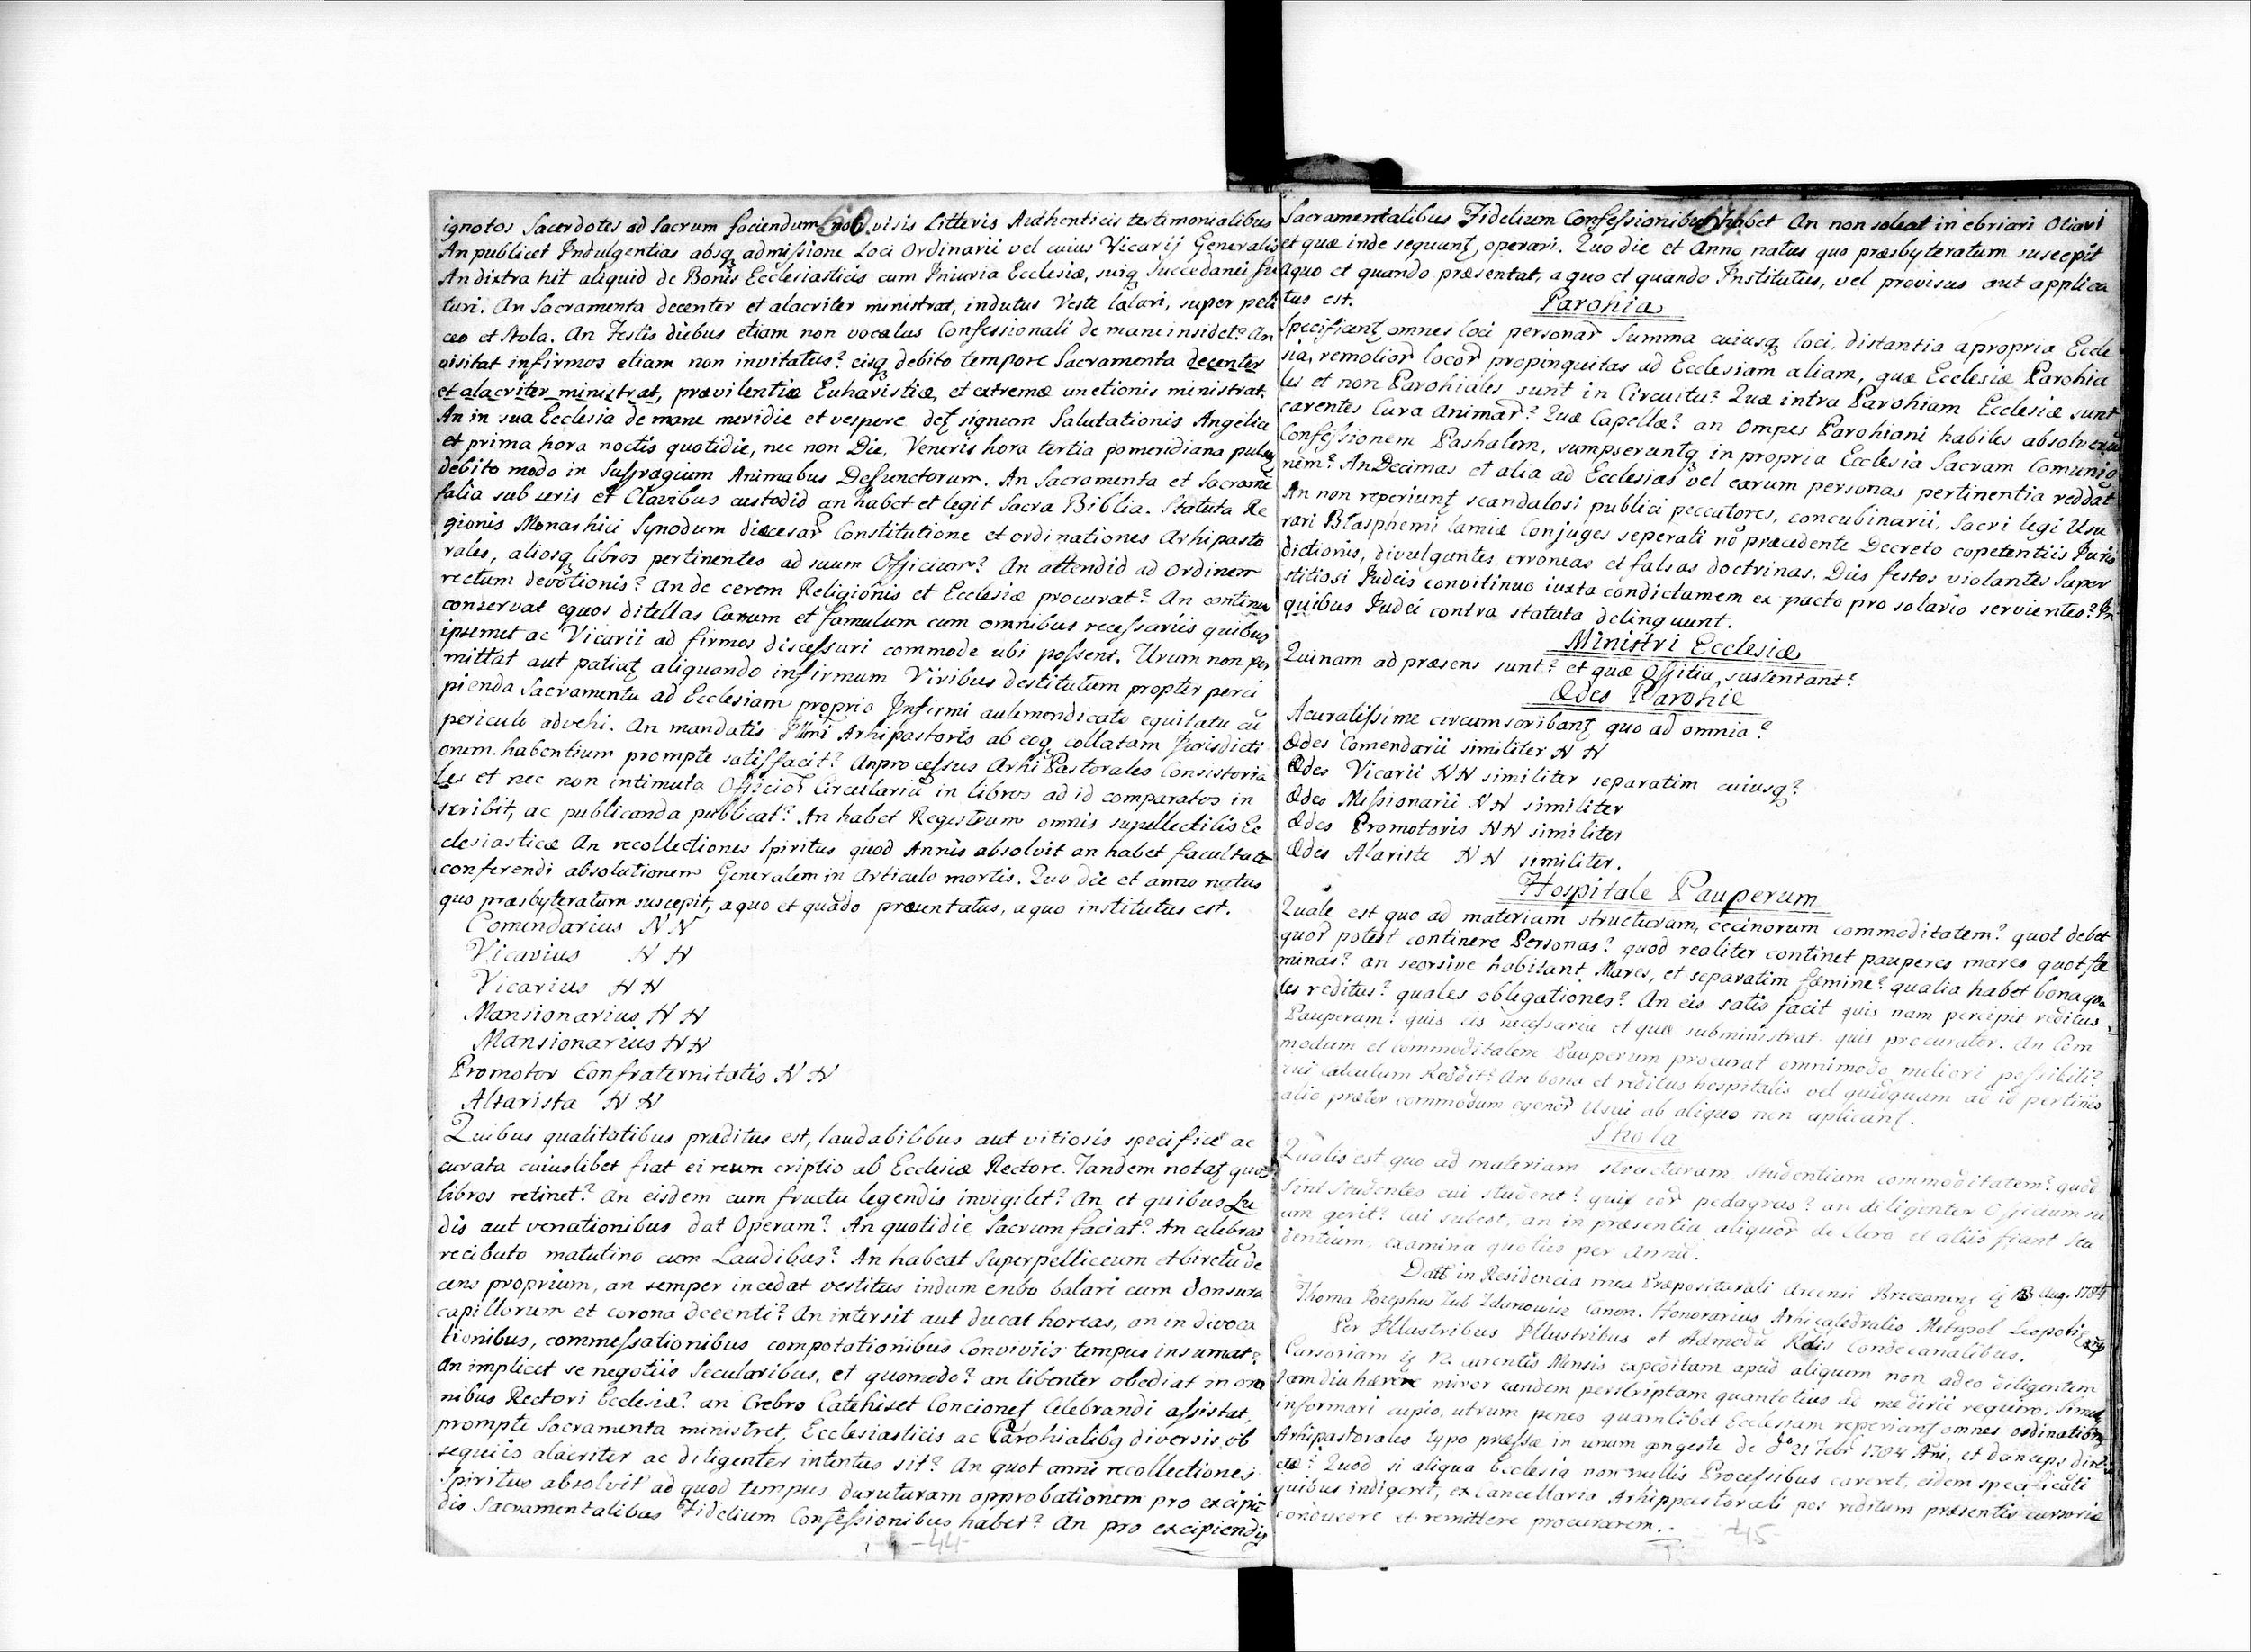 60.
ignotos Sacerdotes ad Sacrum faciendum non visis Litteris Authenticis testimonialibus
An publicet Indulgentias absq admissione Loci Ordinarii vel cuius Vicarij Generalis
An distra hit aliquid de Bonis Ecclesiasticis cum Iniuria Ecclesiæ, suiq Succedanei fu
turi. An Sacramenta decenter et alacriter ministrat, indutus Veste talari, super peli
ceo et Stola. An Festis diebus etiam non vocatus Confessionali de mane insidet? An
visitat infirmos etiam non invitatus? eisq debito tempore Sacramenta decenter
et alacriter ministrat, prævilentiæ Euharistiæ, et extremæ unctionis ministrat.
An in sua Ecclesia de mane meridie et vespere det signum Salutationis Angelica
et prima hora noctis quotidie, nec non Die, Veneris hora tertia pomeridiana
debito modo in Suffragium Animabus Defunctorum. An Sacramenta et Sacrame
talia sub seris et Clavibus custodid an habet et legit Sacra Biblia. Statuta Re
gionis Monashici Synodum diæcesar Constitutione et ordinationes Arhipasto
rales, aliosq libros pertinentes ad suum Officium? An attendid ad Ordinem
rectum devotionis? An de cerem Religionis et Ecclesiæ procurat? An continu
conservat equos ditellas Carum et famulum cum omnibus recessariis quibus
ipsemet ac Vicarii ad firmos discessuri commode ubi possent. Urum non per
mittat aut patiat aliquando infirmum Viribus destitutum propter perci
pienda Sacramenta ad Ecclesiam propria Infirmi equitatu cu
periculo advehi. An mandatis Arhipastoris ab eoq collatam Jurisdicti
onem habentium prompte satisfacit? An processus Arhi Pastorales Consistoria
les et nec non intimuta Officior Circulariu in libros ad id comparatos in
scribit, ac publicanda publicat? An habet Regestrum omnis supellectilis Ec
clesiasticæ An recollectiones Spiritus quod Annis absolvit an habet facultate
conferendi absolutionem Generalem in Articulo mortis. Quo die et anno natus
quo præsbyteratum suscepit, a quo et quado præuntatus, a quo institutus est.
Comendarius NN
Vicarius NN
Vicarius NN
Mansionarius NN
Mansionarius NN
Promotor Confraternitatis NN
Altarista NN
Quibus qualitatibus præditus est, laudabilibus aut vitiosis specifice ac
curata cuiuslibet fiat ei reum criptio ab Ecclesiæ Rectore. Tandem notat quos
libros retinet? An eisdem cum fructu legendis invigilet? An et quibus Lu
dis aut venationibus dat Operam? An quotidie Sacrum faciat? An celebras
recibuto matutino cum Laudibus? An habeat Superpelliceum et biretu de
cens proprium, an semper incedat vestitus indum enbo balari cum donsura
capillorum et corona decenti? An intersit aut ducat horeas, an in divoca
tionibus, commessationibus compotationibus Conviviis tempus insumat?
An implicet se negotiis Secularibus, et quomodo? an libenter obediat in om
nibus Rectori Ecclesiæ? an Crebro Catehiset Concionet Celebrandi assistat,
prompte Sacramenta ministret, Ecclesiasticis ac Parohialibq diversis ob
sequiis alacriter ac diligenter intentus sit? An quot anni recollectiones
Spiritus absolvit ad quod tempus duruturam approbationem pro excipie
dis Sacramentalibus Fidelium Confessionibus habet? An pro excipiendis
44
Sacramentalibus Fidelium Confessionibus habet An non soleat in ebriari Otiari
et quæ inde sequunt, operari. Quo die et Anno natus quo præsbyteratum suscepit
a quo et quando præsentat, a quo et quando Institutus, vel provisus aut applica
tus est.
Parohia
Specificent omnes loci personar Summa cuiusq loci, distantia a propria Eccle
sia, remotior locor propinquitas ad Ecclesiam aliam, quæ Ecclesiæ Parohia
les et non Parohiales sunt in Circuitu? Quæ intra Parohiam Ecclesiæ sunt
carentes Cura Animar? Quæ Capellæ? an Omnes Parohiani habiles absolverun
Confessionem Pashalem, sumpseruntq in propria Ecclesia Sacram Comunio
nem? An Decimas et alia ad Ecclesias vel earum personas pertinentia reddat
An non reperiunt scandalosi publici peccatores, concubinarii, Sacri legi Usu
rari Blasphemi lamiæ Conjuges seperati no præcedente Decreto copetentiis Juris
dictionis, divulgantes erroneas et falsas doctrinas, Dies festos violantes Super
stitiosi Judeis convitinuo iuxta condictamem ex pacto pro solario servientes? In
quibus Judei contra statuta delinquunt.
Ministri Ecclesiæ
Quinam ad præsens sunt? et quæ Offitia sustentant?
Ædes Parohiæ
Acuratissime circumscribant quo ad omnia?
Ædes Comendarii similiter NN
Ædes Vicarii NN similiter separatim cuiusq?
Ædes Missionarii NN similiter
Ædes Promotoris NN similiter
Ædes Alariste NN similiter.
Hospitale Pauperum
Quale est quo ad materiam structuram, cecinorum commoditatem? quot debet
quor potest continere Personas? quod realiter continet pauperes mares quot fæ
minas? an seorsive habitant Mares, et separatim fæmine? qualia habet bona qua
les reditus? quales obligationes? An eis satis facit quis nam percipit reditus
Pauperum? quis eis necessaria et quæ subministrat quis procurator. An Com
modum et commoditatem Pauperum procurat omnimodo meliori possibili?
cui calculum Reddit? An bona et reditus hospitalis vel quidquam ad id pertines
alio præter commodum egenor Usui ab aliquo non aplicant.
Shola
Qualis est quo ad materiam structuram studentium commoditatem? quod
sint studentes cui student? quis eor pedagrus? an diligenter Officium su
um gerit? cui subest, an in præsentia aliquor de clero et aliis fiunt stu
dentium examina quoties per Annu.
Datt in Residencia mea Præpositurali Arcensi Brzezanens 13 Aug. 1784
Thoma Josephus Zub Zdanowicz Canon. Honorarius Arhicatedralis Metropol Leopoli
Per Illustribus Illustribus et Admodu Rdis Condecanalibus.
Cursoriam 12 curentis Mensis expeditam apud aliquem non adeo diligentem
tam diu hærere miror eandem perscriptam quantotius ad me dirii requiro. Simul
informari cupio, utrum penes quamlibet Ecclesiam reperiant omnes ordinationes
Arhipastorales typo præssæ in unum congeste de 21 Febr 1784 Ani, et danceps
Quod si aliqua Ecclesia non nullis Processibus careret, eidem specificati
quibus indigeret, ex Cancellaria Arhippastorali per reditum præsentis cursoriæ
conducere et remittere procurarem.
45